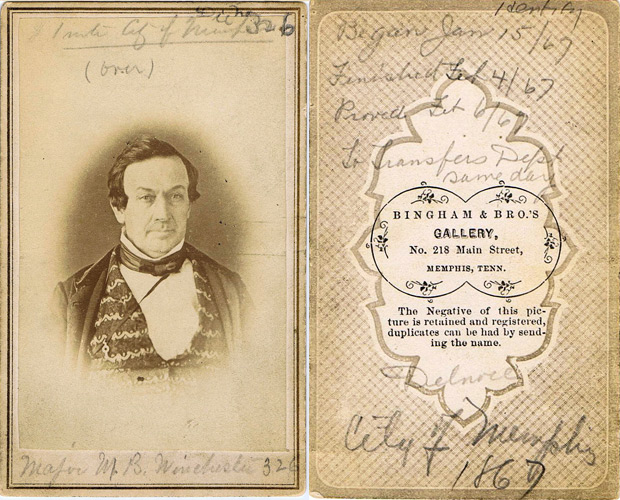 326
City of
(over)
Major M. B. Winchester 326
Identity
Began Jan 15/67
Finished Feb 4/67
Proved Feb 6/67
To Transfers Dept
same day
BINGHAM & BRO.'S
GALLERY,
No. 218 Main Street,
MEMPHIS, TENN.
The Negative of this pic-
ture is retained and registered,
duplicates can be had by send-
ing the name.
City of Memphis
1867